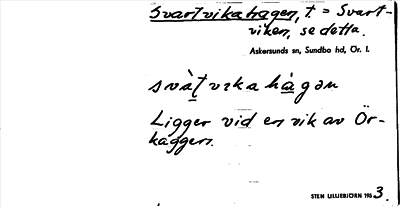 Svartvikahagen, t. = Svart-
viken, se detta.
Askersunds sn, Sundbo hd, Ör. l.
svàt vıka hágən
Ligger vid en vik av Ör-
kaggen.
STEN LILLIEBJÖRN 1963.